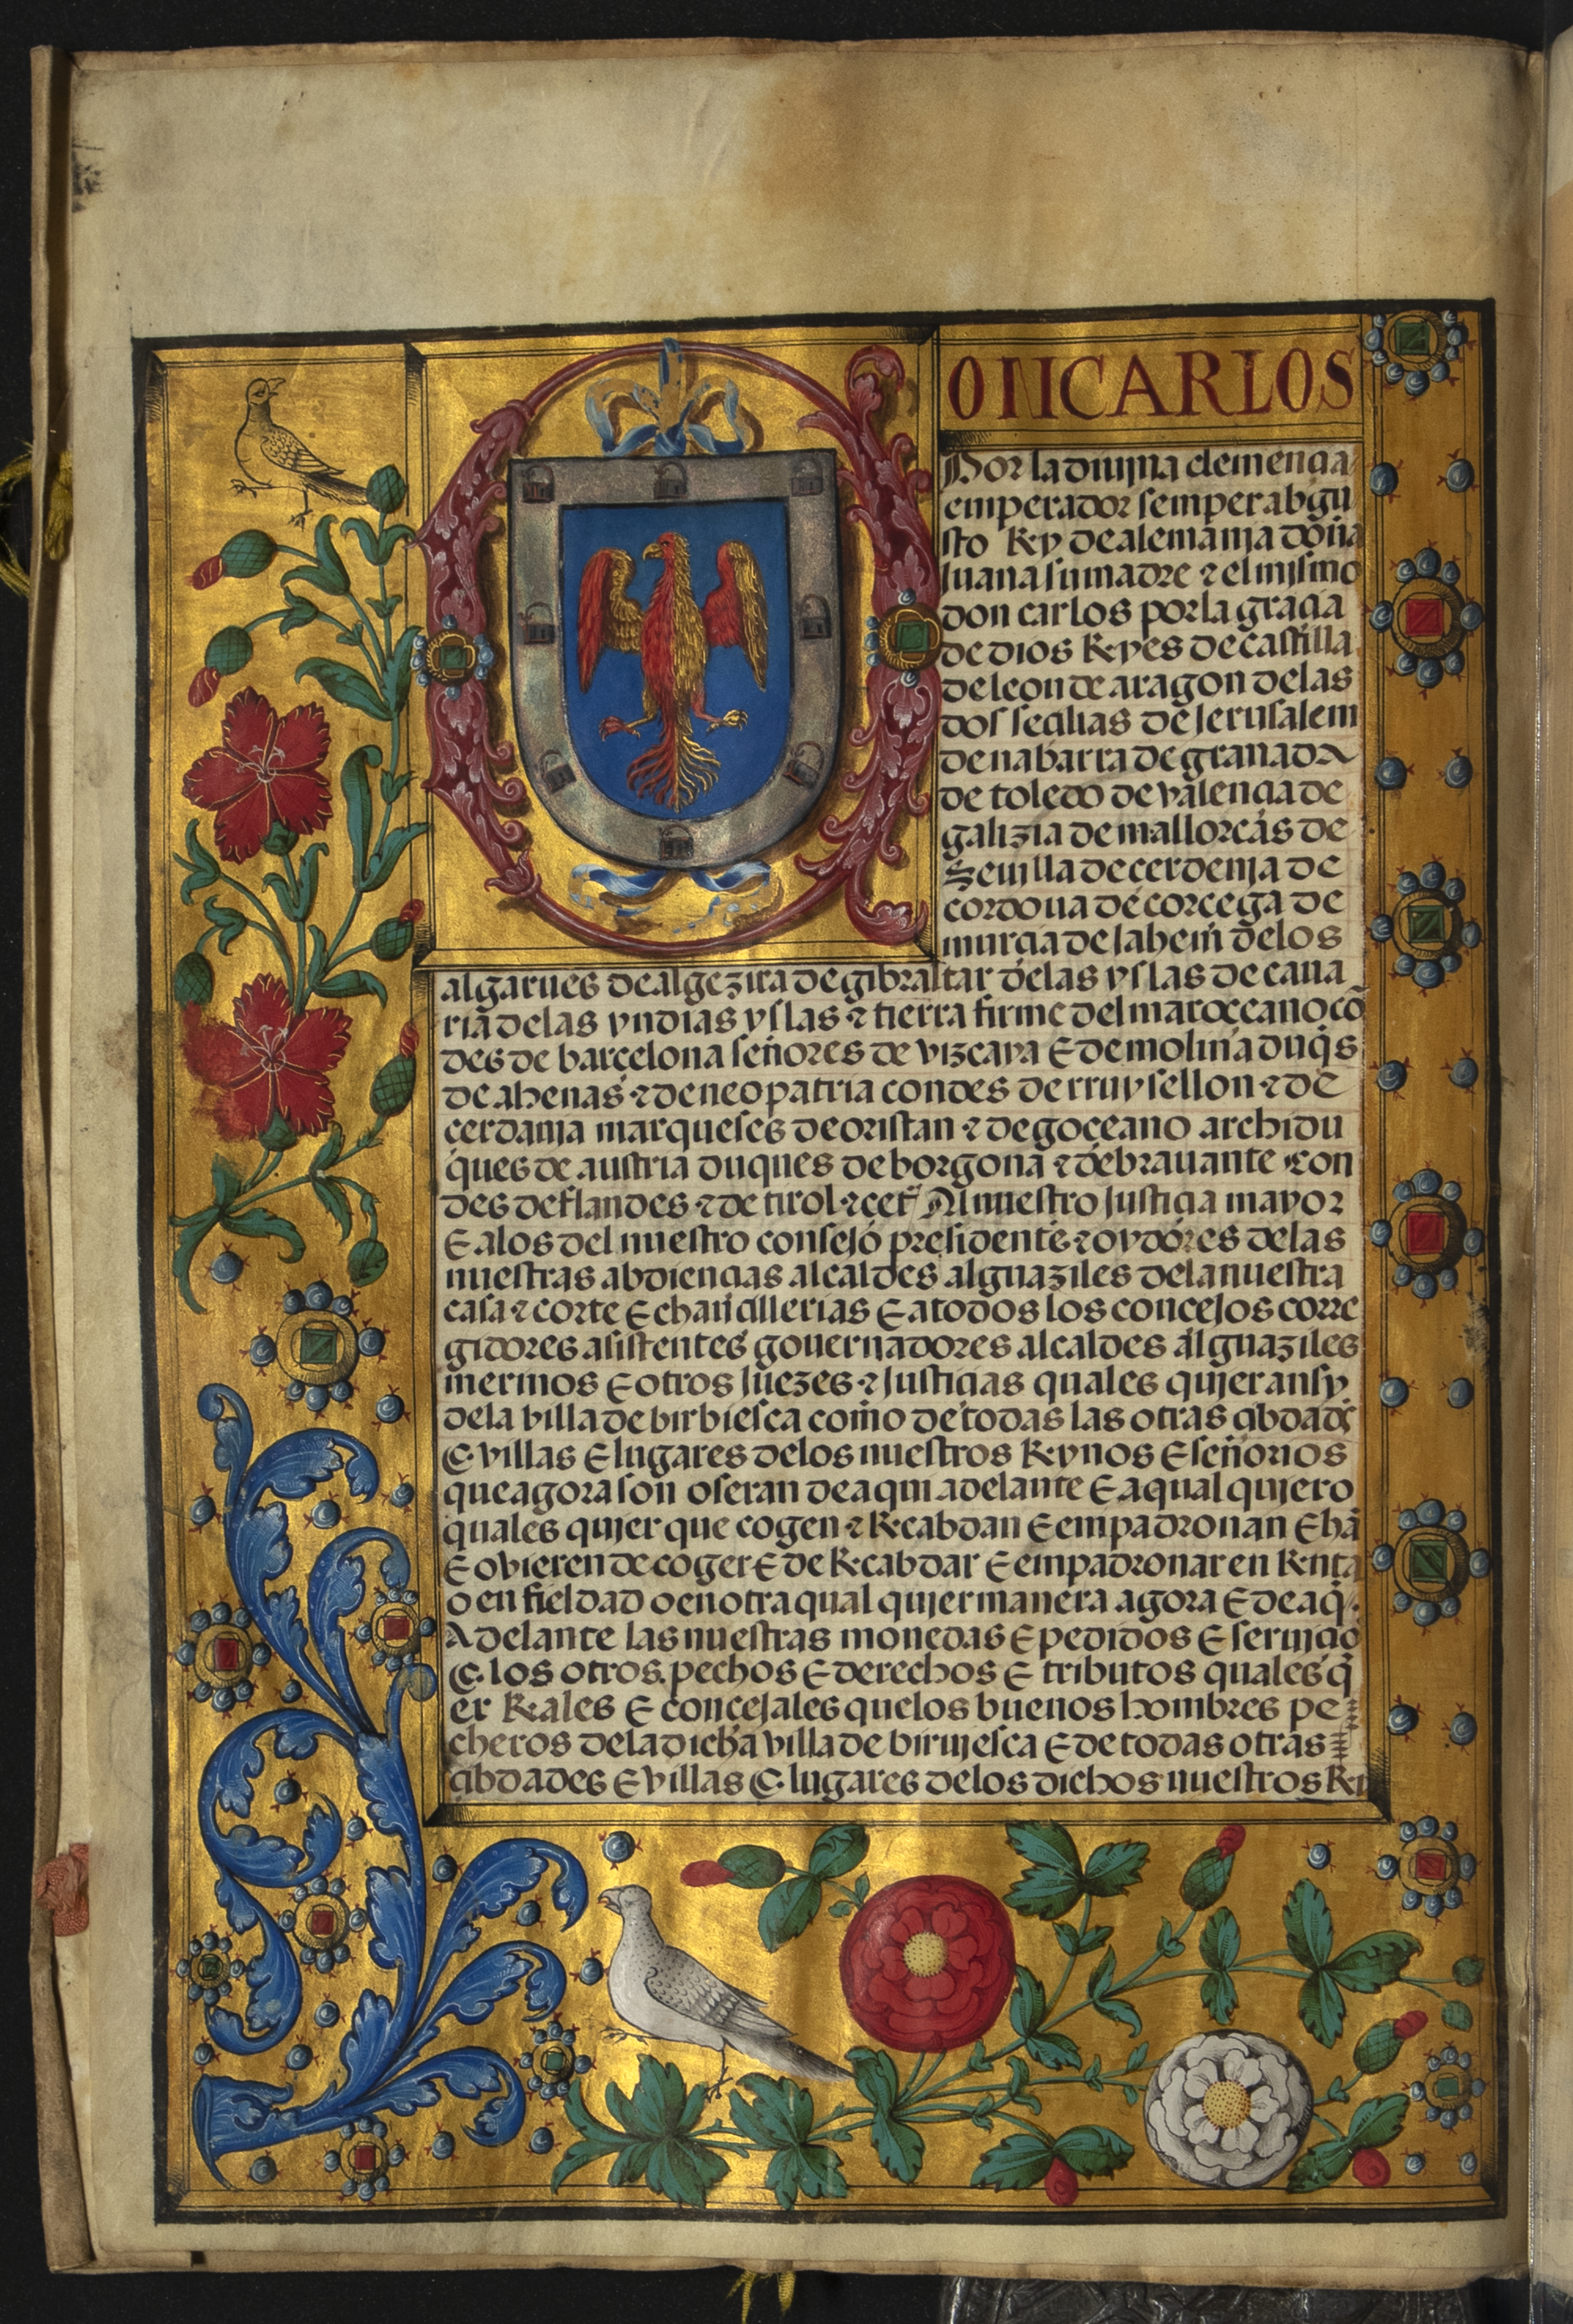 DON CARLOS
Por la diuina clemencia
emperador semper abgu
sto Rey de alemania doña
Juana su madre τ el mismo
don carlos por la gracia
de dios Reyes de castilla
de leon de aragon de las
dos secilias de Jerusalem
de nabarra de granada
de toledo de valencia de
galizia de mallorcas de
Seuilla de cerdenia de
cordoua de corcega de
murcia de Jahein de los
algarues de algezira de gibraltar de las yslas de cana
ria de las yndias yslas τ tierra firme del mar occano cõ
des de barcelona señores de vizcaya E de molina duqs
de athenas τ de neopatria condes de rruysellon τ de
cerdania marqueses de oristan τ de goceano archidu
ques de austria duques de borgona τ de brauante con
des de flandes τ de tirol τ cet Al nuestro Justicia mayor
E a los del nuestro consejo presidente τ oydores de las
nuestras abdiencias alcaldes alguaziles de la nuestra
casa τ corte E chancillerias E a todos los concejos corre
gidores asistentes gouernadores alcaldes alguaziles
merinos E otros Juezes τ Justicias quales quier ansy
de la villa de birbiesca como de todas las otras cibdades
E villas E lugares de los nuestros Reynos E señorios
que agora son o seran de aqui adelante E a qual quiero
quales quier que cogen τ Recabdan E empadronan E hã
E ovieren de coger E de Recabdar E empadronar en Renta
o en fieldad o en otra qual quier manera agora E de aq
Adelante las nuestras monedas E pedidos E seruicio
E los otros pechos E derechos E tributos quales q
er Reales E concejales que los buenos hombres pe
cheros de la dicha villa de biruiesca E de todas otras
cibdades E villas E lugares de los dichos nuestros Re